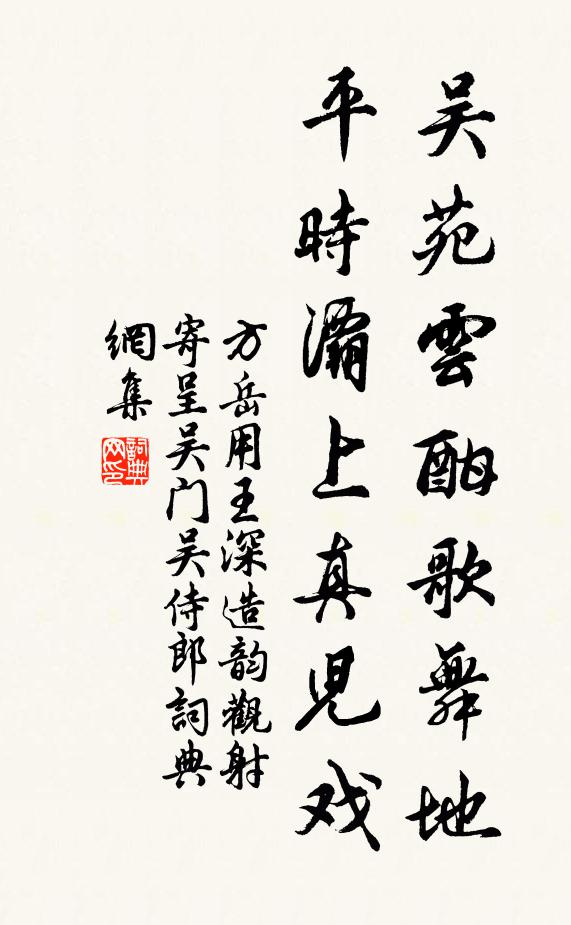 吴苑雲酣歌舞地
平時灞上真児戏
方岳用王深造韵觀射
寄呈吴门吴侍郎詞典
網集
詞典网印